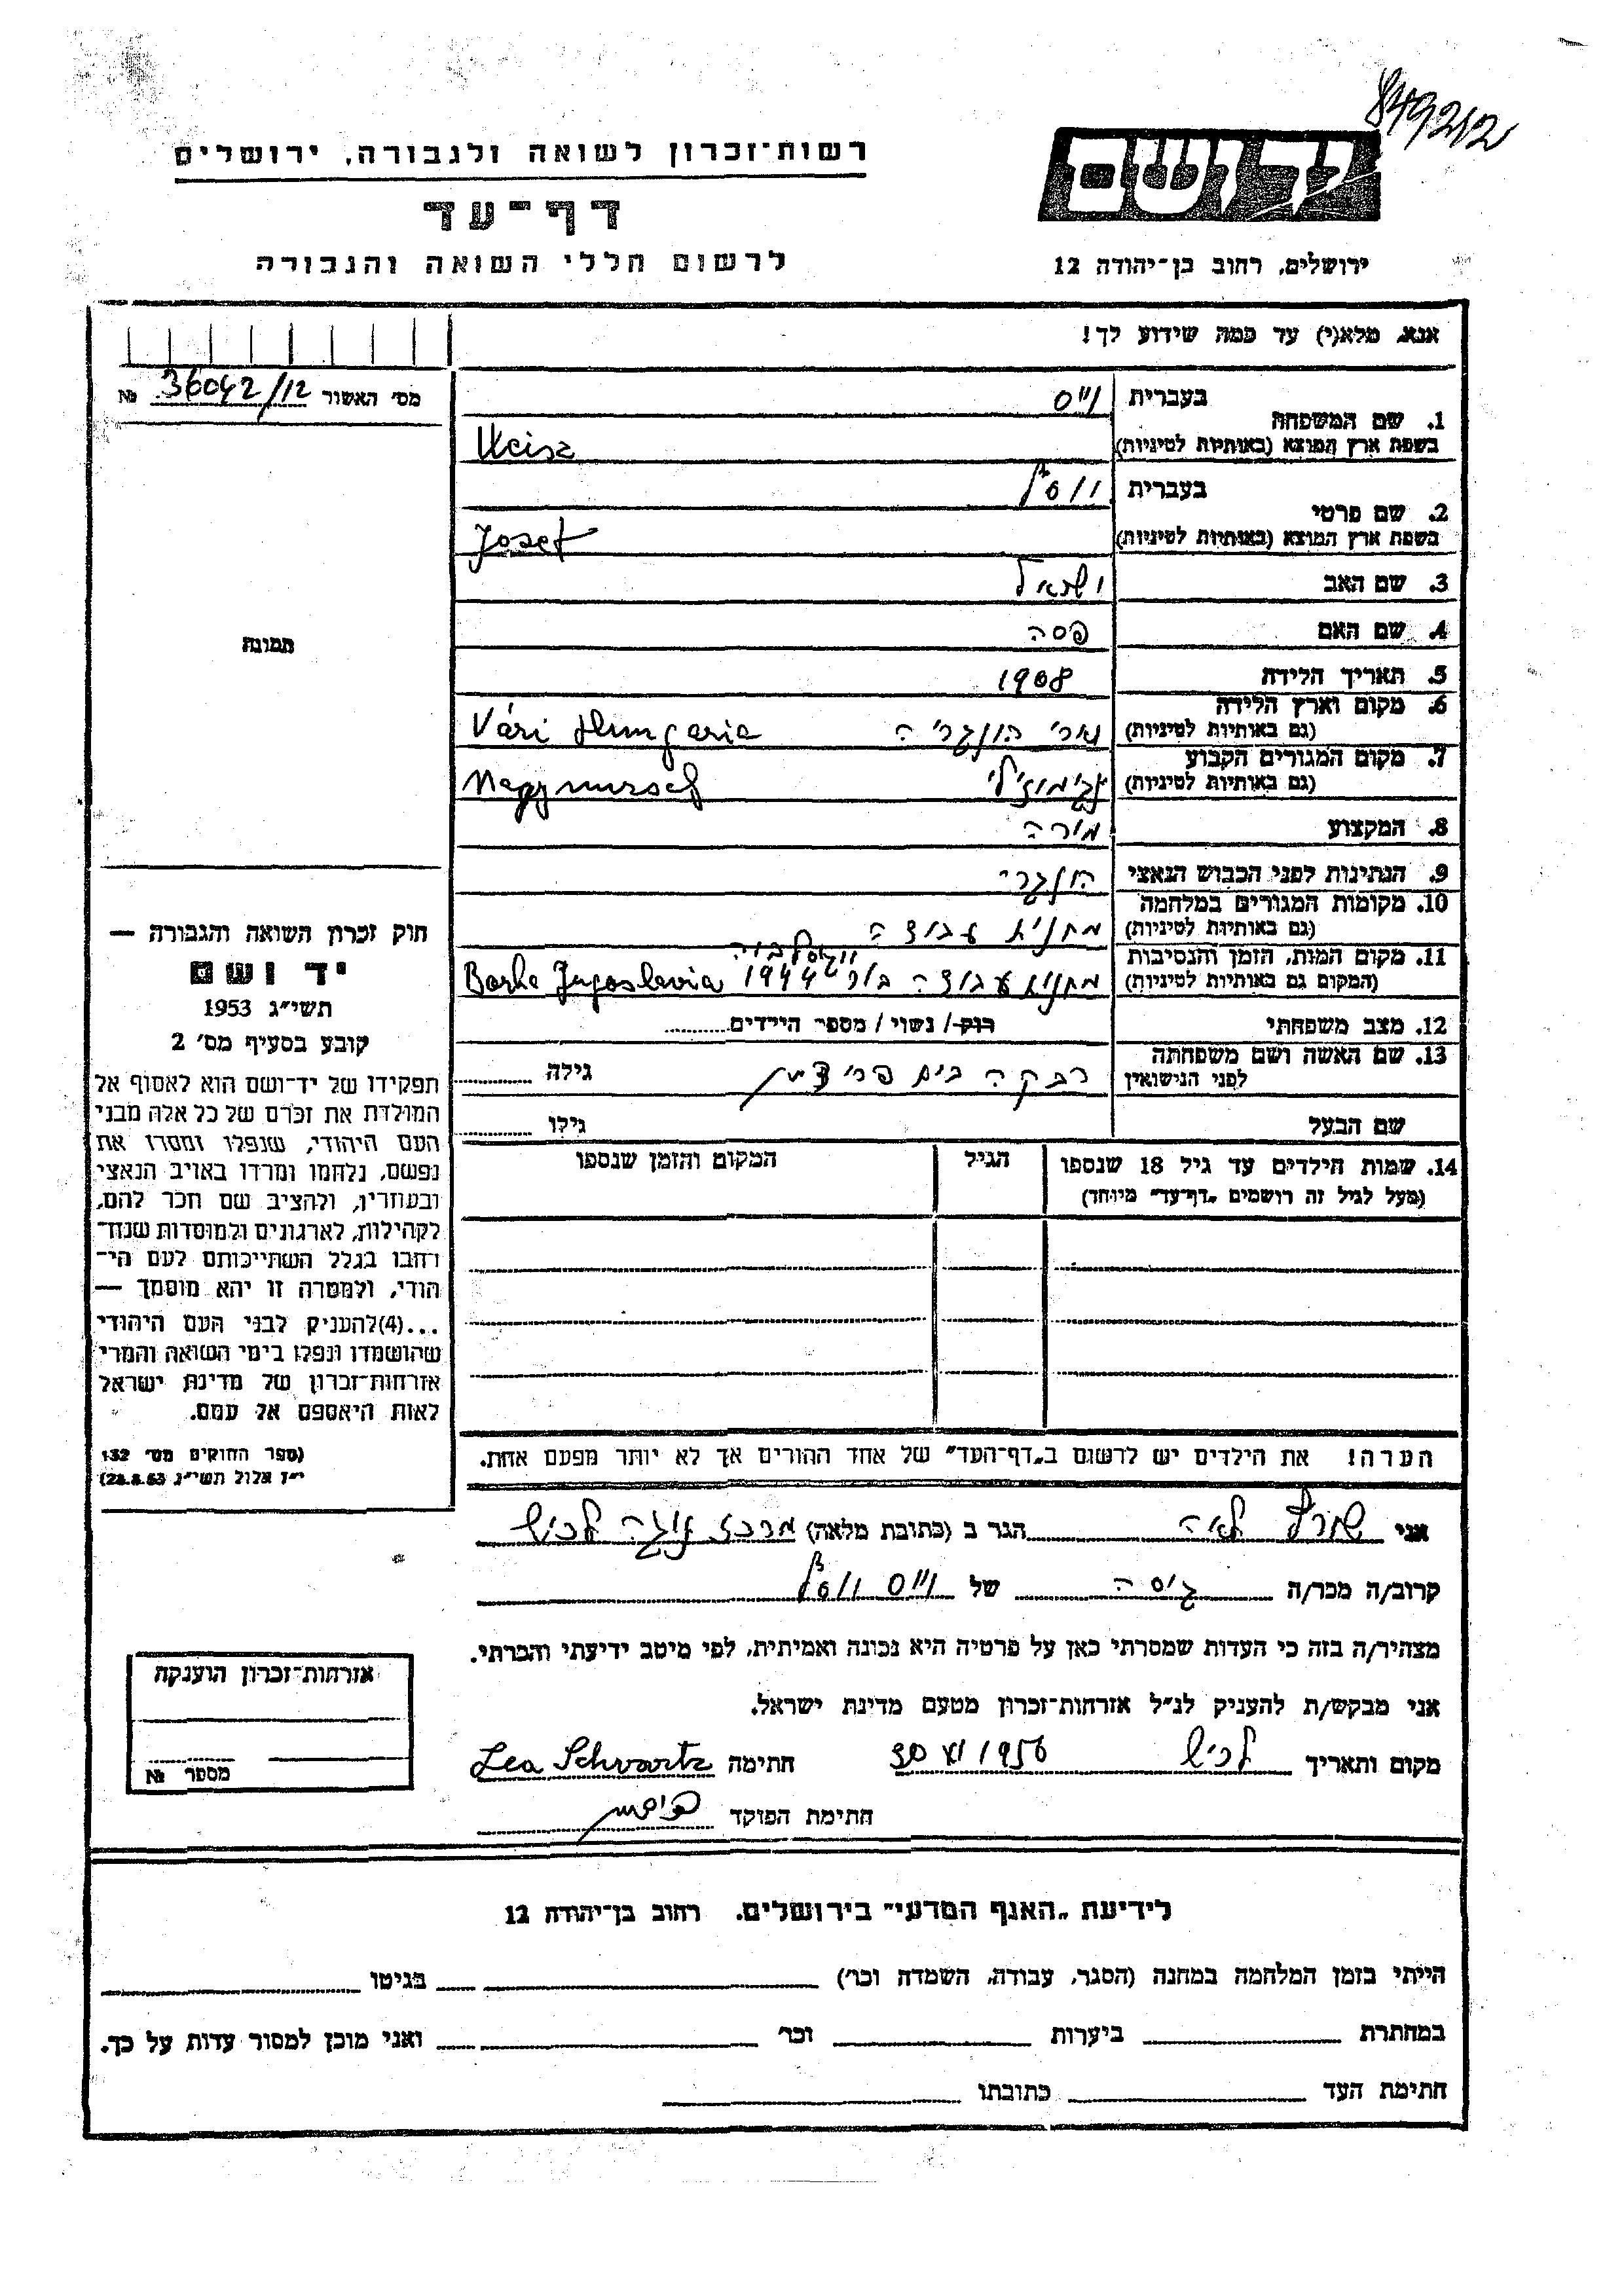 849212
רשות־זכרון לשואה ולגבורה, ירושלים
יד ושם
דף־עד
לרשום חללי השואה והגבורה
ירושלים, רחוב בן־יהודה 12
אנא, מלא(י) עד כמה שידוע לך!
מס׳ האשור 36042/12 №
1. שם המשפחה בעברית וייס
בשפת ארץ המוצא (באותיות לטיניות) Weisz
2. שם פרטי בעברית
בשפת ארץ המוצא (באותיות לטיניות) Josef
3. שם האב ישראל
4. שם האם פסה
תמונה
5. תאריך הלידה 1908
6. מקום וארץ הלידה
(גם באותיות לטיניות) וארי הונגריה Vári Hungaria
7. מקום המגורים הקבוע
(גם באותיות לטיניות)
8. המקצוע מורה
9. הנתינות לפני הכבוש הנאצי הונגרי
10. מקומות המגורים במלחמה
(גם באותיות לטיניות) מחנית עבודה
11. מקום המות, הזמן והנסיבות יוגוסלביה
(המקום גם באותיות לטיניות) מחנית עבודה בור 1944 Jugoslavia
12. מצב משפחתי רוק / נשוי / מספר הילדים
13. שם האשה ושם משפחתה
לפני הנישואין רבקה בית פרידמן גילה
שם הבעל גילו
14. שמות הילדים עד גיל 18 שנספו הגיל המקום והזמן שנספו
(מעל לגיל זה רושמים „דף־עד״ מיוחד)
חוק זכרון השואה והגבורה —
יד ושם
תשי״ג 1953
קובע בסעיף מס׳ 2
תפקידו של יד־ושם הוא לאסוף אל
המולדת את זכרם של כל אלה מבני
העם היהודי, שנפלו ומסרו את
נפשם, נלחמו ומרדו באויב הנאצי
ובעוזריו, ולהציב שם וזכר להם,
לקהילות, לארגונים ולמוסדות שנח־
רחבו בגלל השתייכותם לעם הי־
הודי, ולמטרה זו יהא מוסמך —
...(4) להעניק לבני העם היהודי
שהושמדו ונפלו בימי השואה והמרי
אזרחות־זכרון של מדינת ישראל
לאות היאספם אל עמם.
(ספר החוקים מס׳ 132
י״ז אלול תשי״ג, 28.8.53)
הערה! את הילדים יש לרשום ב„דף־העד״ של אחד ההורים אך לא יותר מפעם אחת.
אני לאה הגר ב (כתובת מלאה) לכיש
קרוב/ה מכר/ה גיסה של וייס
מצהיר/ה בזה כי העדות שמסרתי כאן על פרטיה היא נכונה ואמיתית, לפי מיטב ידיעתי והכרתי.
אני מבקש/ת להעניק לנ״ל אזרחות־זכרון מטעם מדינת ישראל.
מקום ותאריך לכיש 30 1956 חתימה Lea Schvartz
חתימת הפוקד
אזרחות־זכרון הוענקה
מספר №
לידיעת „האגף המדעי״ בירושלים, רחוב בן־יהודה 12
הייתי בזמן המלחמה במחנה (הסגר, עבודה, השמדה וכר׳) בגיטו
במחתרת ביערות וכר׳ ואני מוכן למסור עדות על כך.
חתימת העד כתובתו